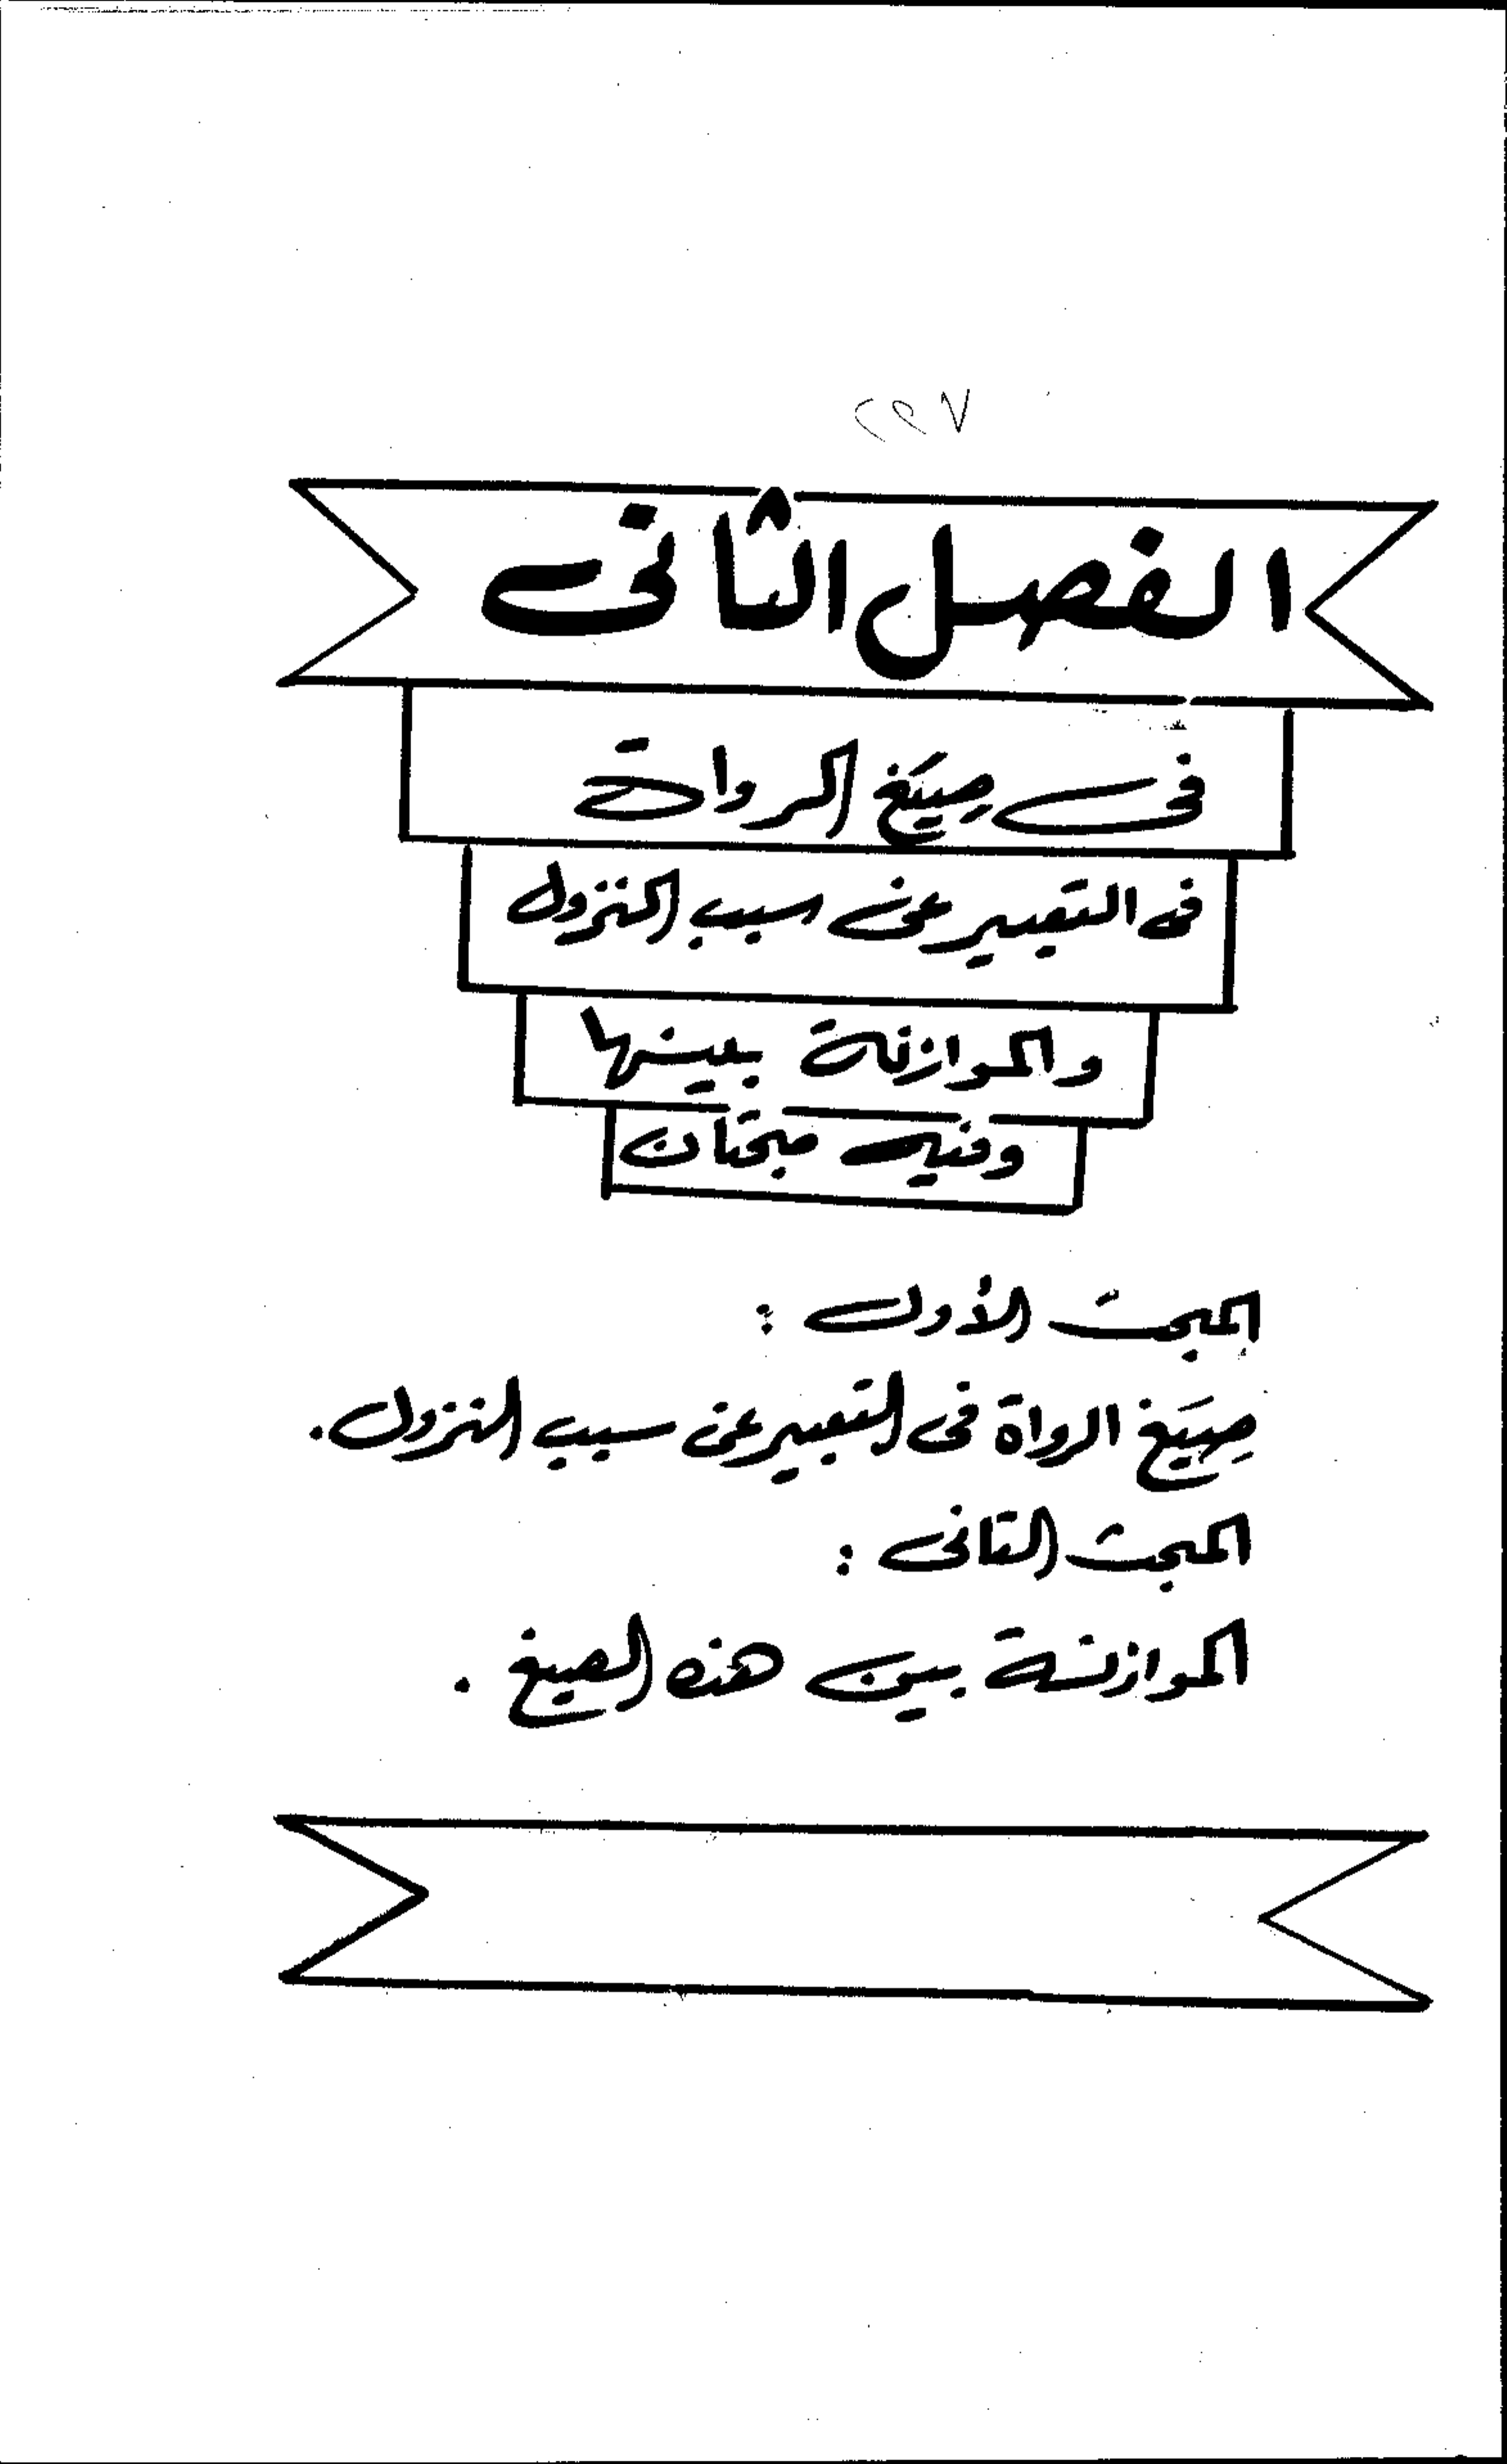 الفصل الثانى
فى صِيَغ الرواة
فى التعبير عن سبب النزول
والموازنة بينها
وفيه مبحثان
المبحث الأول :
صِيَغ الرواة فى التعبير عن سبب النزول.
المبحث الثانى :
الموازنة بين هذه الصيغ .